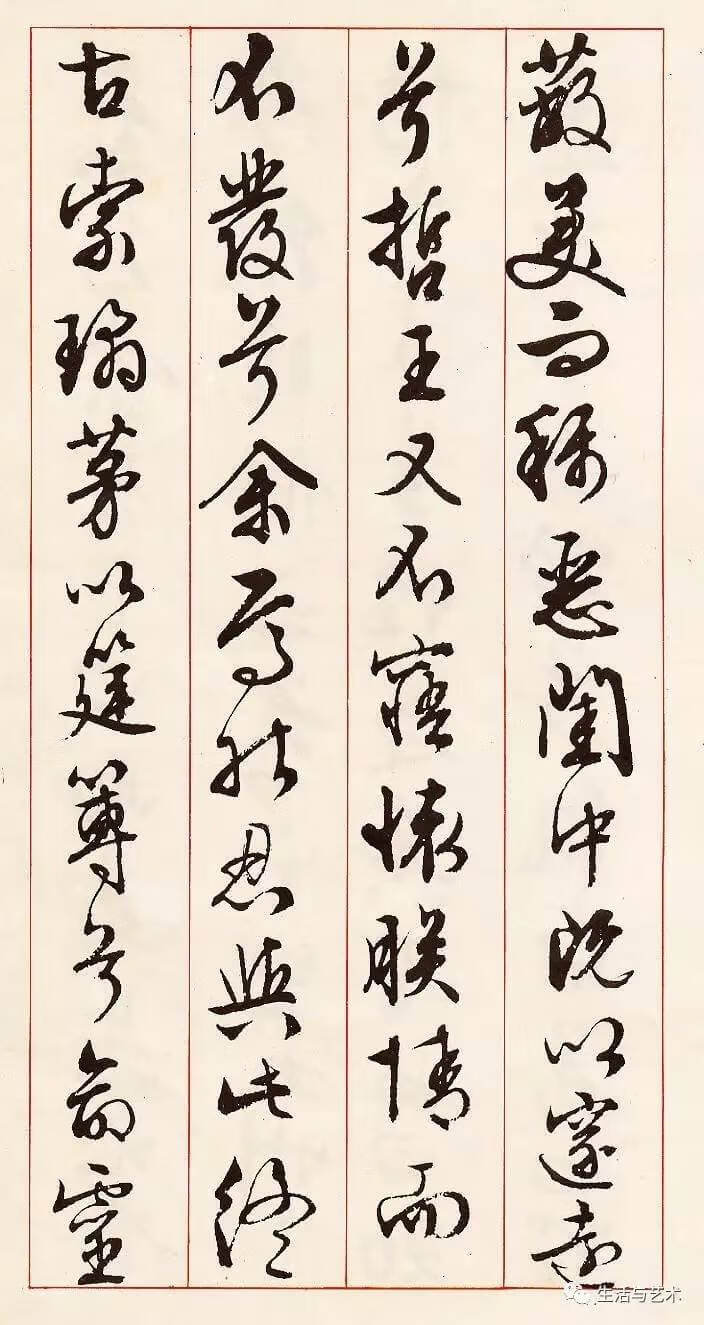 蔽美而稱惡閨中既以邃遠
兮哲王又不寤懷朕情而
不發兮余焉能忍與此終
古索瓊茅以筳篿兮命靈
生活与艺术